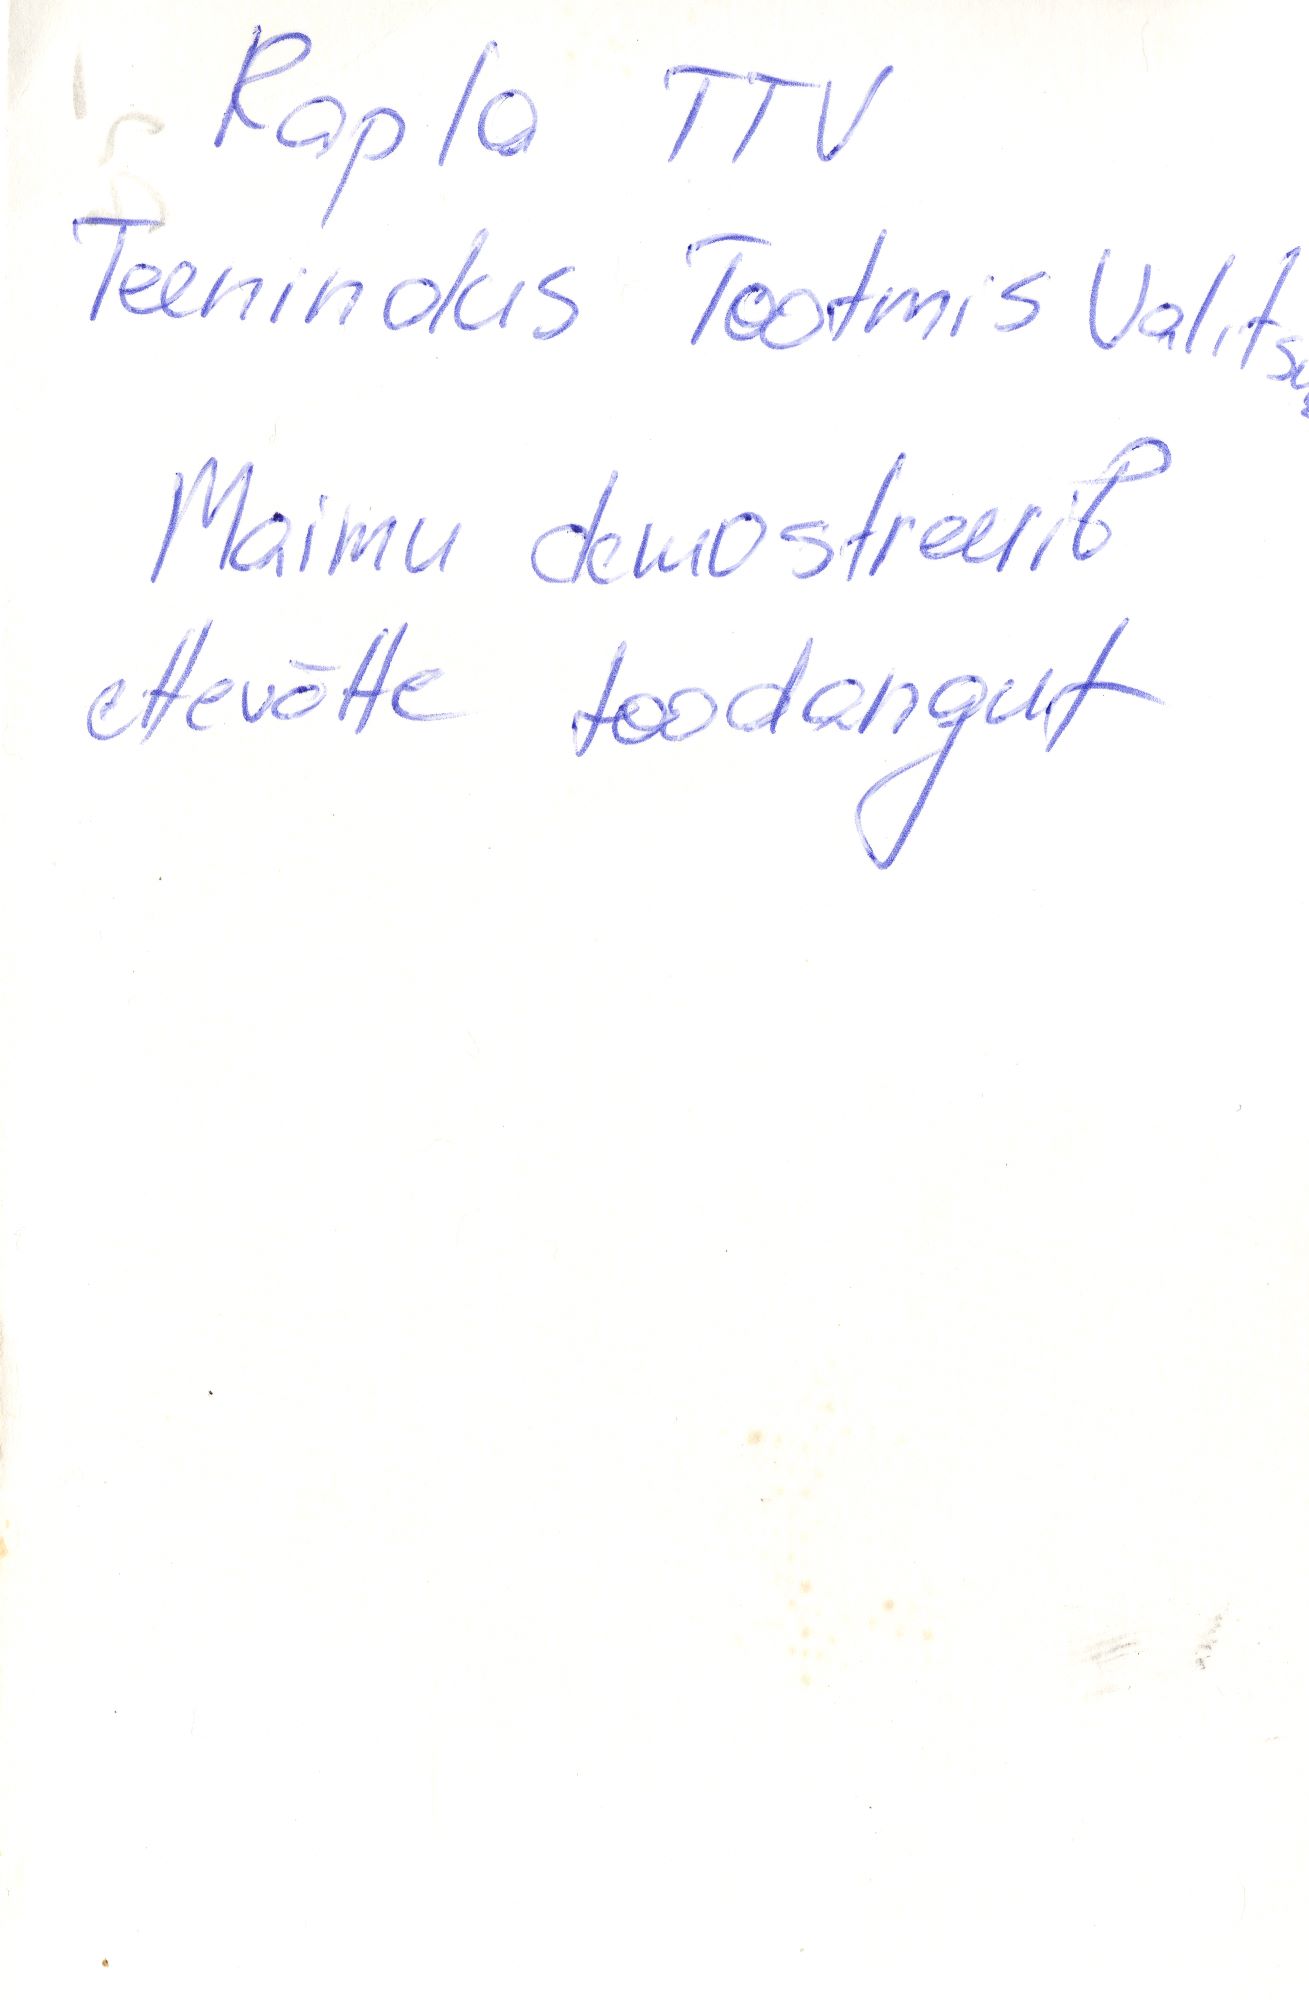 Rapla TTV
Teenindus Tootmis Valitsus
Maimu demostreerib
ettevõtte toodangut